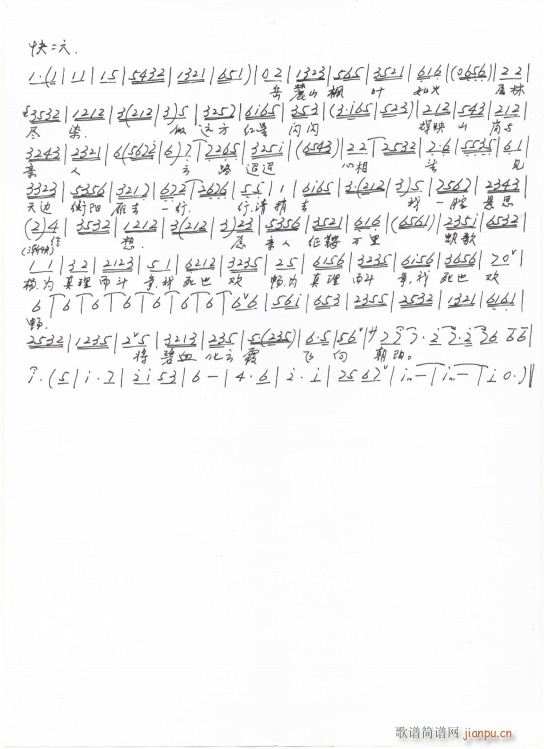 快二六.
1·(1|11|15|5432|1321|651)|02|1323|565|3521|616|(0656)|22|
岳 麓山 枫 叶 如火 层林
3532|1212|3(212|3)5|3257|6165|353|(3·165|523)|212|543|212|
尽 染. 似 这方 红星 闪闪 辉映 山岗与
3243|2321|6(5676|6)7|7265|325i|(6543)|22|2532|7·6|5535|61|
亲人 云路迢迢 心相 见
3323|5356|3217|672|2676|55|1|6165|3·(212|3)5|7567|2343|
天边 衡阳雁去一行. 行,请捎去 我一腔 思
(2)4|3532|1212|3(212|3)23|5356|3521|616|(6561)|235i|6532|
(渐快) 信 想. 愿 亲人 征鞍万里 凯歌
11|32|2123|51|6212|3235|25|6156|3235|6156|3656|70|
扬,为真理而斗争,我死也欢 畅,为真理而斗争,我死也欢
6|6|6|6|6|6|6|66|56i|653|2355|2532|1321|6161|
畅.
2532|1235|25|3213|235|5(235)|6·5|56|
将 碧血 化云霞 飞向 朝阳。
i·(5|i·7|2i53|6—|4·6|2·i|7567|i—|i—|i0·)‖
歌谱简谱网
jianpu.cn